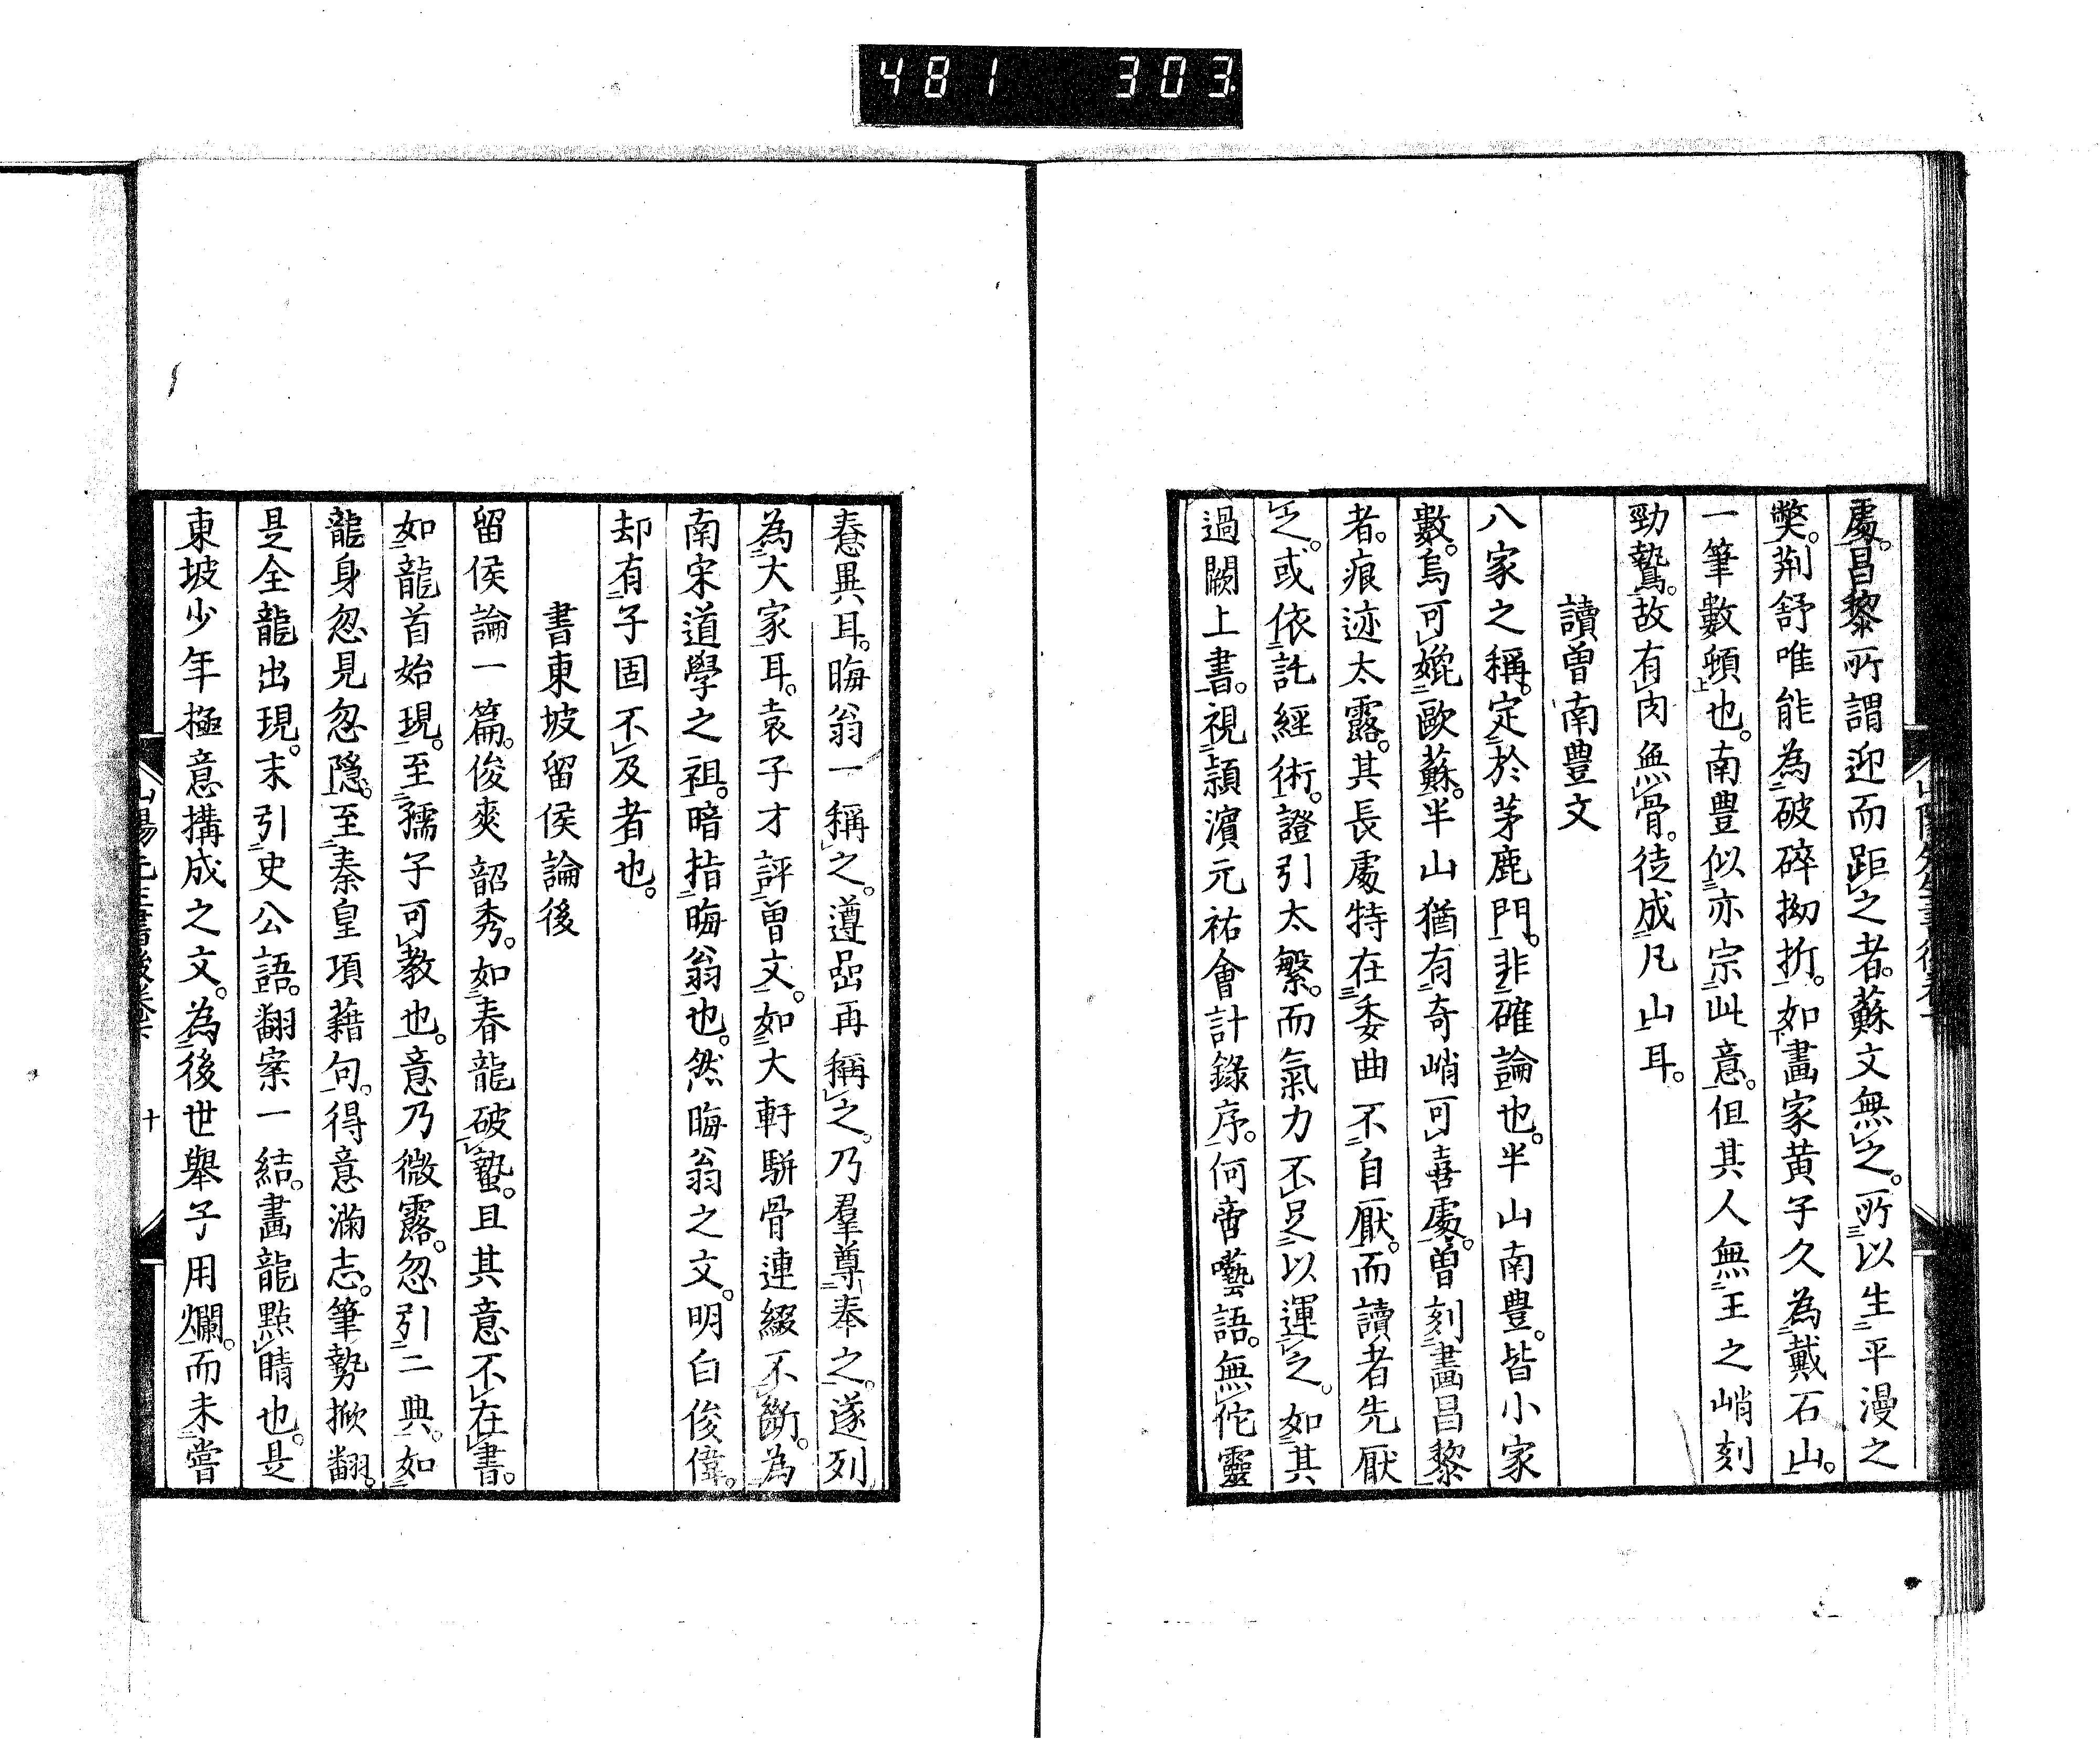 481 303
處。昌黎所謂迎而距之者。蘇文無之。所以生平漫之
獘。荊舒唯能為破碎拗折。如畫家黃子久為戴石山。
一筆數頓也。南豊似亦宗此意。但其人無王之峭刻
勁鷙。故有肉無骨。徒成凡山耳。
讀曽南豊文
八家之稱。定於茅鹿門。非確論也。半山南豊。皆小家
數。烏可媲歐蘇。半山猶有奇峭可喜處。曽刻畫昌黎
者。痕迹太露。其長處特在委曲不自厭。而讀者先厭
之。或依託經術。證引太繁。而氣力不足以運之。如其
過闕上書。視潁濱元祐會計錄序。何啻囈語。無佗靈
惷異耳。晦翁一稱之。遵嵒再稱之。乃羣尊奉之。遂列
為大家耳。袁子才評曽文。如大軒駢骨連綴不斷。為
南宋道學之祖。暗指晦翁也。然晦翁之文。明白俊偉。
却有子固不及者也。
書東坡留侯論後
留侯論一篇。俊爽韶秀。如春龍破蟄。且其意不在書。
如龍首始現。至孺子可教也。意乃微露。忽引二典。如
龍身忽見忽隱。至秦皇項藉句。得意滿志。筆勢掀翻。
是全龍出現。末引史公語。翻案一結。畫龍點睛也。是
東坡少年極意搆成之文。為後世舉子用爛。而未嘗
十